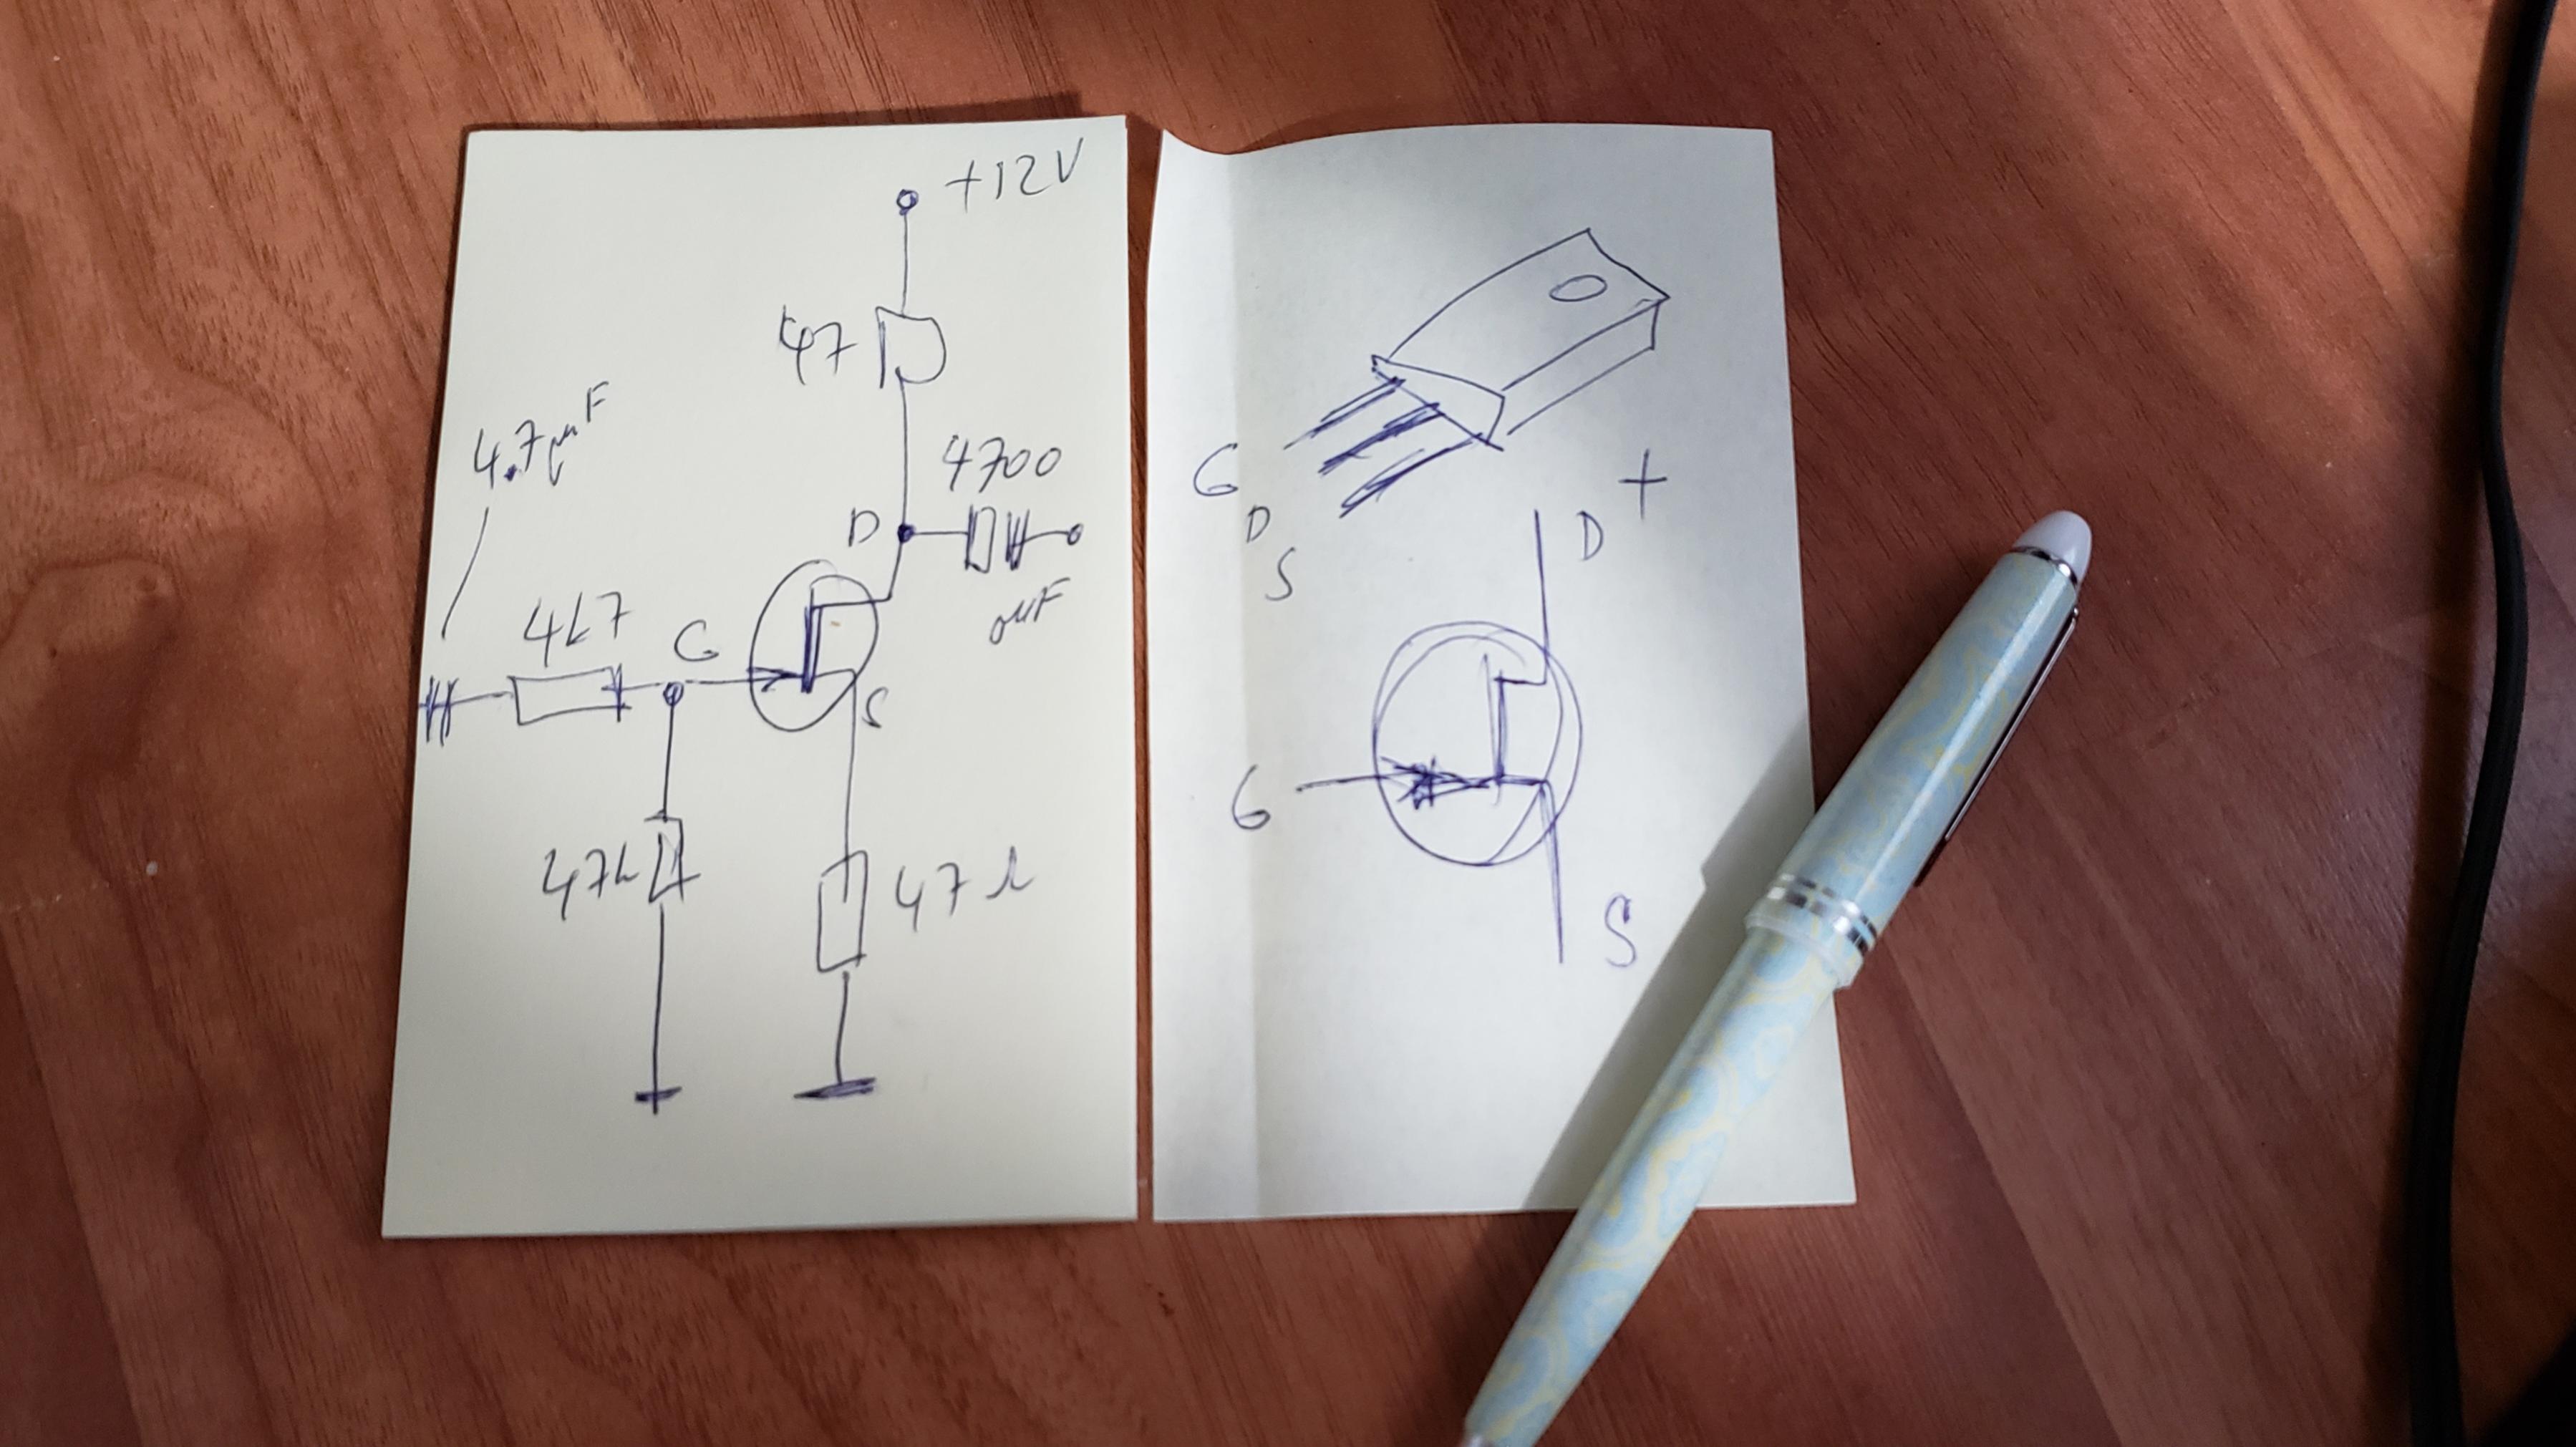 +12V
47
4.7µF
4700
D
µF
4k7
G
S
47k
47Ω
G
D
S
+
D
G
S